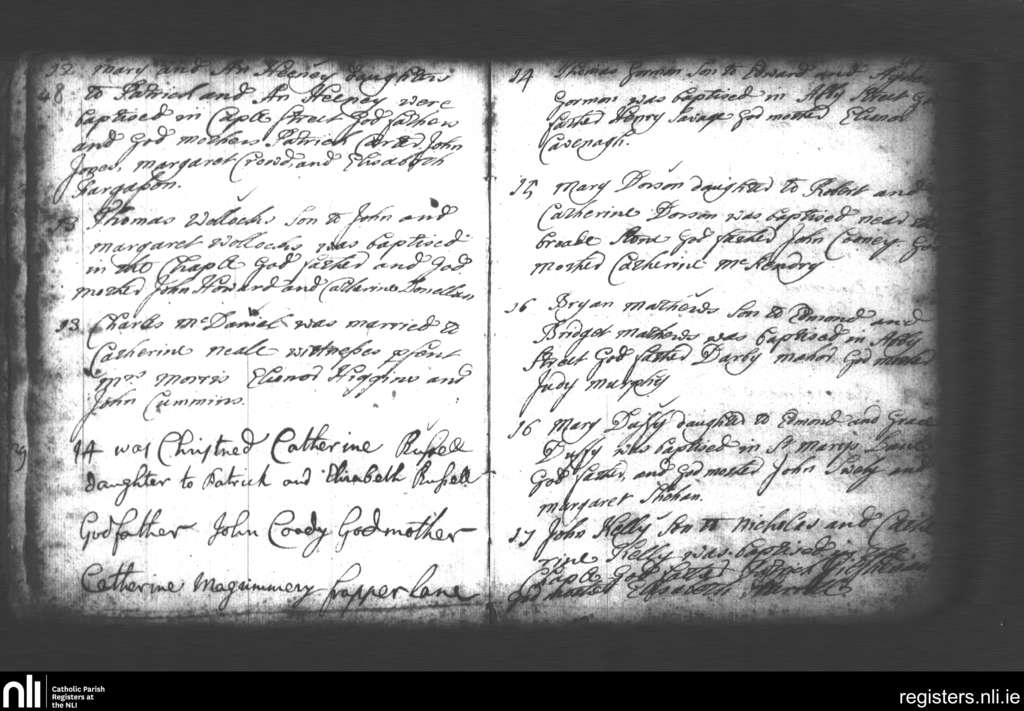 12 Mary and An Heeney daughters
48 to Patrick and An Heeney were
baptised in Caple street God fathers
and God mothers Patrick John
Jones, margaret and Elisabeth
Thomas Wollocks Son to John and
margaret Wollocks was baptised
in the Chaple God father and God
mother John Howard and Catherine Donellan
13 Charles McDaniel was married to
Catherine neale witnesses psent
Mrs Morris Elienor Higgins and
John Cummins.
14 was Christned Catherine Russell
daughter to Patrick and Elizabeth Russell
Godfather John Coody Godmother
Catherine Magummery frapper lane
14 Thomas Gorman Son to Edward and
Gorman was baptised in Abby Street
father Henry Savage God mother Elienor
Cavenagh.
15 Mary Dorson daughter to Robert and
Catherine Dorson was baptised near
God father John Cooney God
mother Catherine McKendry
16 Bryan mathews Son to Edmond and
Bridget mathews was baptised in Abby
Street God father Darby God mother
Judy murphy
16 Mary Duffy daughter to Edmond and Grace
Duffy was baptised in St Marys
God father, and God mother John and
margaret
17 John Kelly Son to nicholas and Cathe
rine Kelly was baptised in the
Chaple God father
God mother Elisabeth
nli
Catholic Parish
Registers at
the NLI
registers.nli.ie